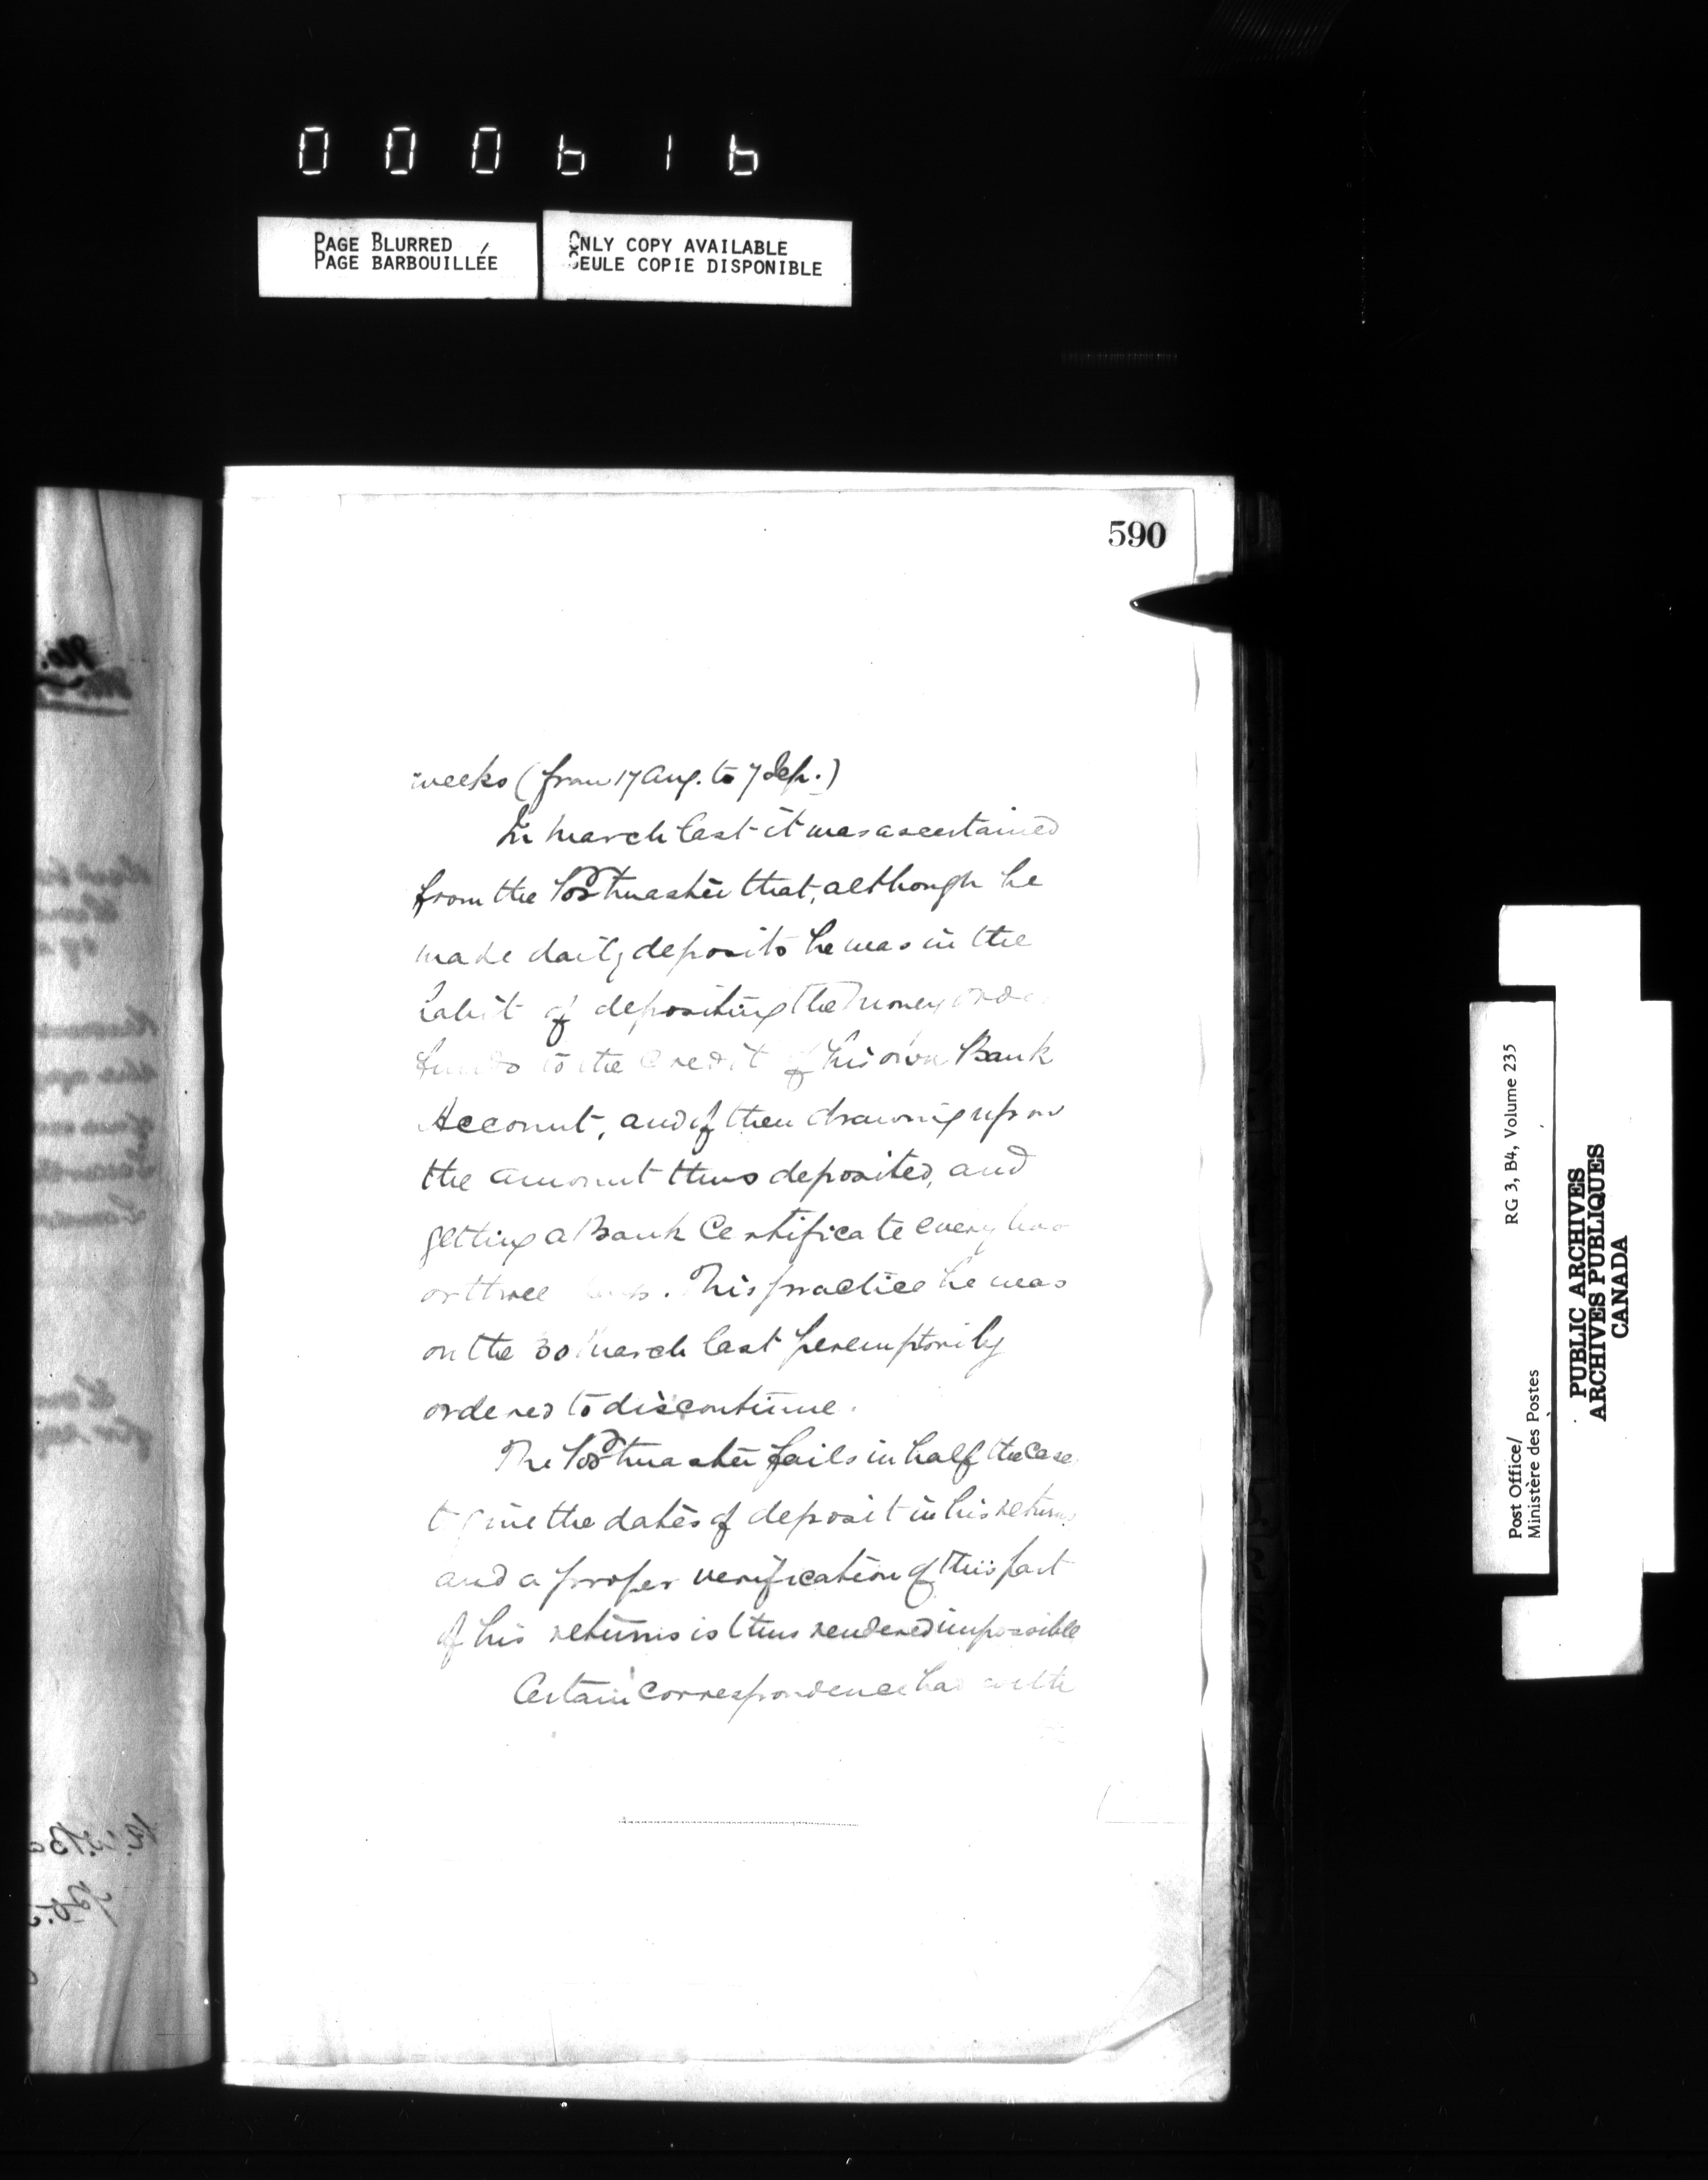 000616
PAGE BLURRED
PAGE BARBOUILLÉE
ONLY COPY AVAILABLE
SEULE COPIE DISPONIBLE
590
weeks (from 17 Aug. to 7 Sep.)
In March last it was ascertained
from the Postmaster that, although he
made daily deposits he was in the
habit of depositing the Money Order
funds to the credit of his own Bank
Account, and of then drawing upon
the amount thus deposited, and
getting a Bank Certificate every two
or three . This practice he was
on the 30 March last peremptorily
ordered to discontinue.
The Postmaster fails in half the case
to give the dates of deposit in his returns
and a proper verification of this part
of his returns is thus rendered impossible
Certain correspondence had with
Post Office/
Ministère des Postes
RG 3, B4, Volume 235
PUBLIC ARCHIVES
ARCHIVES PUBLIQUES
CANADA